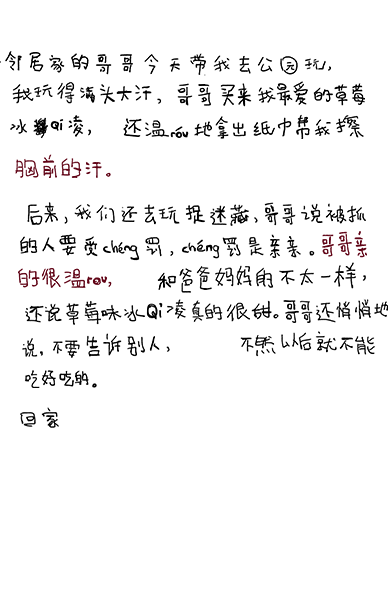 邻居家的哥哥今天带我去公园玩，
我玩得满头大汗，哥哥买来我最爱的草莓
冰Qi凌，还温róu地拿出纸巾帮我擦
胸前的汗。
后来，我们还去玩捉迷藏，哥哥说被抓
的人要受chéng罚，chéng罚是亲亲。哥哥亲
的很温rou，和爸爸妈妈的不太一样，
还说草莓味冰Qi凌真的很甜。哥哥还悄悄地
说，不要告诉别人，不然以后就不能
吃好吃的。
回家